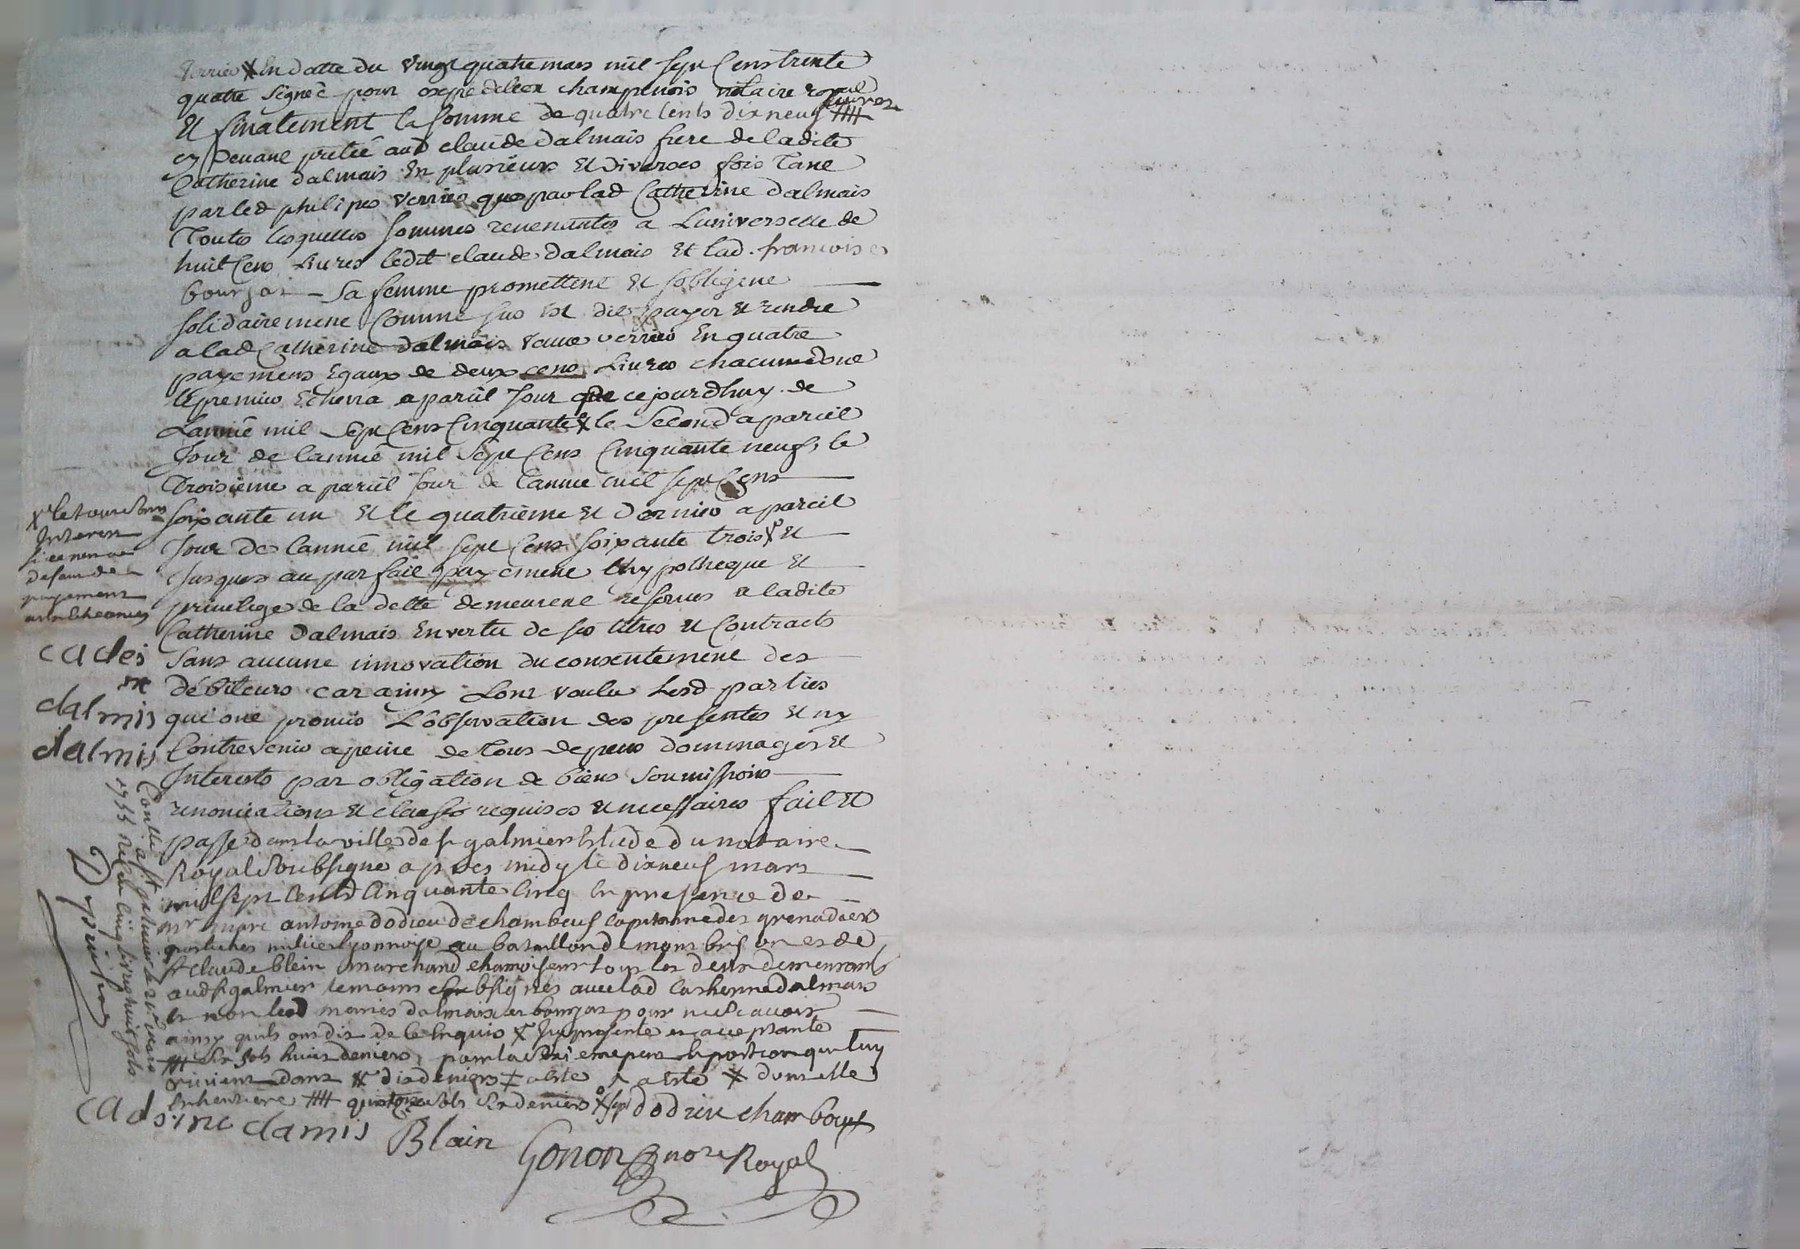 verrier X En datte du vingt quatre mars mil sept Cens trente
quatre signée pour expedition champenois notaire royal
Et finalement la somme de quatre cents dix neuf livres ####
prettée aud claude dalmais frere de ladite
Catherine dalmais En plusieurs Et diverses fois Tant
par led philipes verrier que par lad Catherine dalmais
Toutes lesquelles sommes revenantes a Luniverselle de
huit Cens Livres ledit claude dalmais Et lad. francoise
bourjat sa femme promettent Et sobligent
solidairement Comme sus Est dit payer Et rendre
a lad Catherine dalmais veuve verrier En quatre
payemens Egaux de deux cens Livres chacun dont
le premier Echerra a pareil Jour que ce jourdhuy de
Lannée mil sept Cens Cinquante le second a pareil
Jour de lannée mil sept Cens Cinquante neuf, le
Troisieme a pareil Jour de Lannée mil sept Cens
soixante un Et le quatrieme Et dernier a pareil
Jour de lannée mil sept Cens soixante trois X Et
Jusques au parfait payement Lhypotheque Et
privilege de la dette demeurent reservés a ladite
Catherine dalmais En vertu de ses titres Et Contracts
sans aucune innovation du consentement des
débiteurs car ainsy Lont voulu lesd parties
qui ont promis Lobservation des presentes Et ny
Contrevenir a peine de tous depens dommages Et
Interests par obligation de biens soumissions
renonciations Et clauses requises Et necessaires fait Et
passé dans la ville de st galmier Etude du notaire
Royal soubsigné apres midy le dixneuf mars
mil sept Cents Cinquante Cinq En presence de
mr antoine dodieu de chambeuf capitaine des grenadiers
milice lyonnoise au bataillon de monbrison et de
st claude blein marchand chamoiseur tous les deux demeurants
aud st galmier temoins soubsignés avec lad Catherine dalmais
Et non lesd mariés dalmais et bourjat pour ne le avoir
ainsy quils ont dit de ce Enquis X presente et acceptante
#### six sols huit deniers, pour la
revient dans dix deniers X dont elle
heritiere ####
X
Interets
a deffaut de
payement
cades
dalmis
dalmis
a st galmier le
1755
cadsine damis
Blain
dodieu chambeuf
Gonon nore Royal